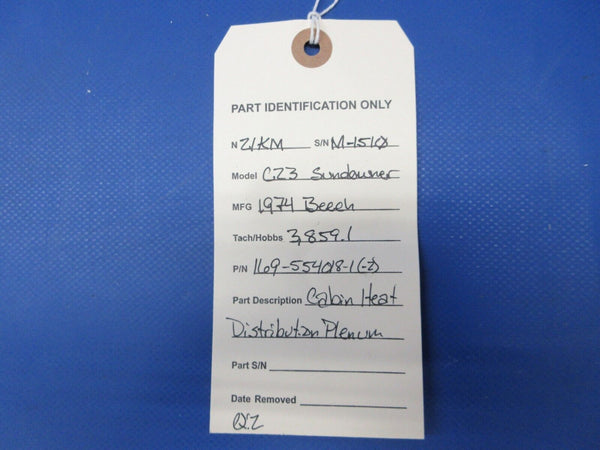 PART IDENTIFICATION ONLY
N 21KM S/N M-1510
Model C23 Sundowner
MFG 1974 Beech
Tach/Hobbs 3,859.1
P/N 169-554018-1(-2)
Part Description Cabin Heat
Distribution Plenum
Part S/N
Date Removed